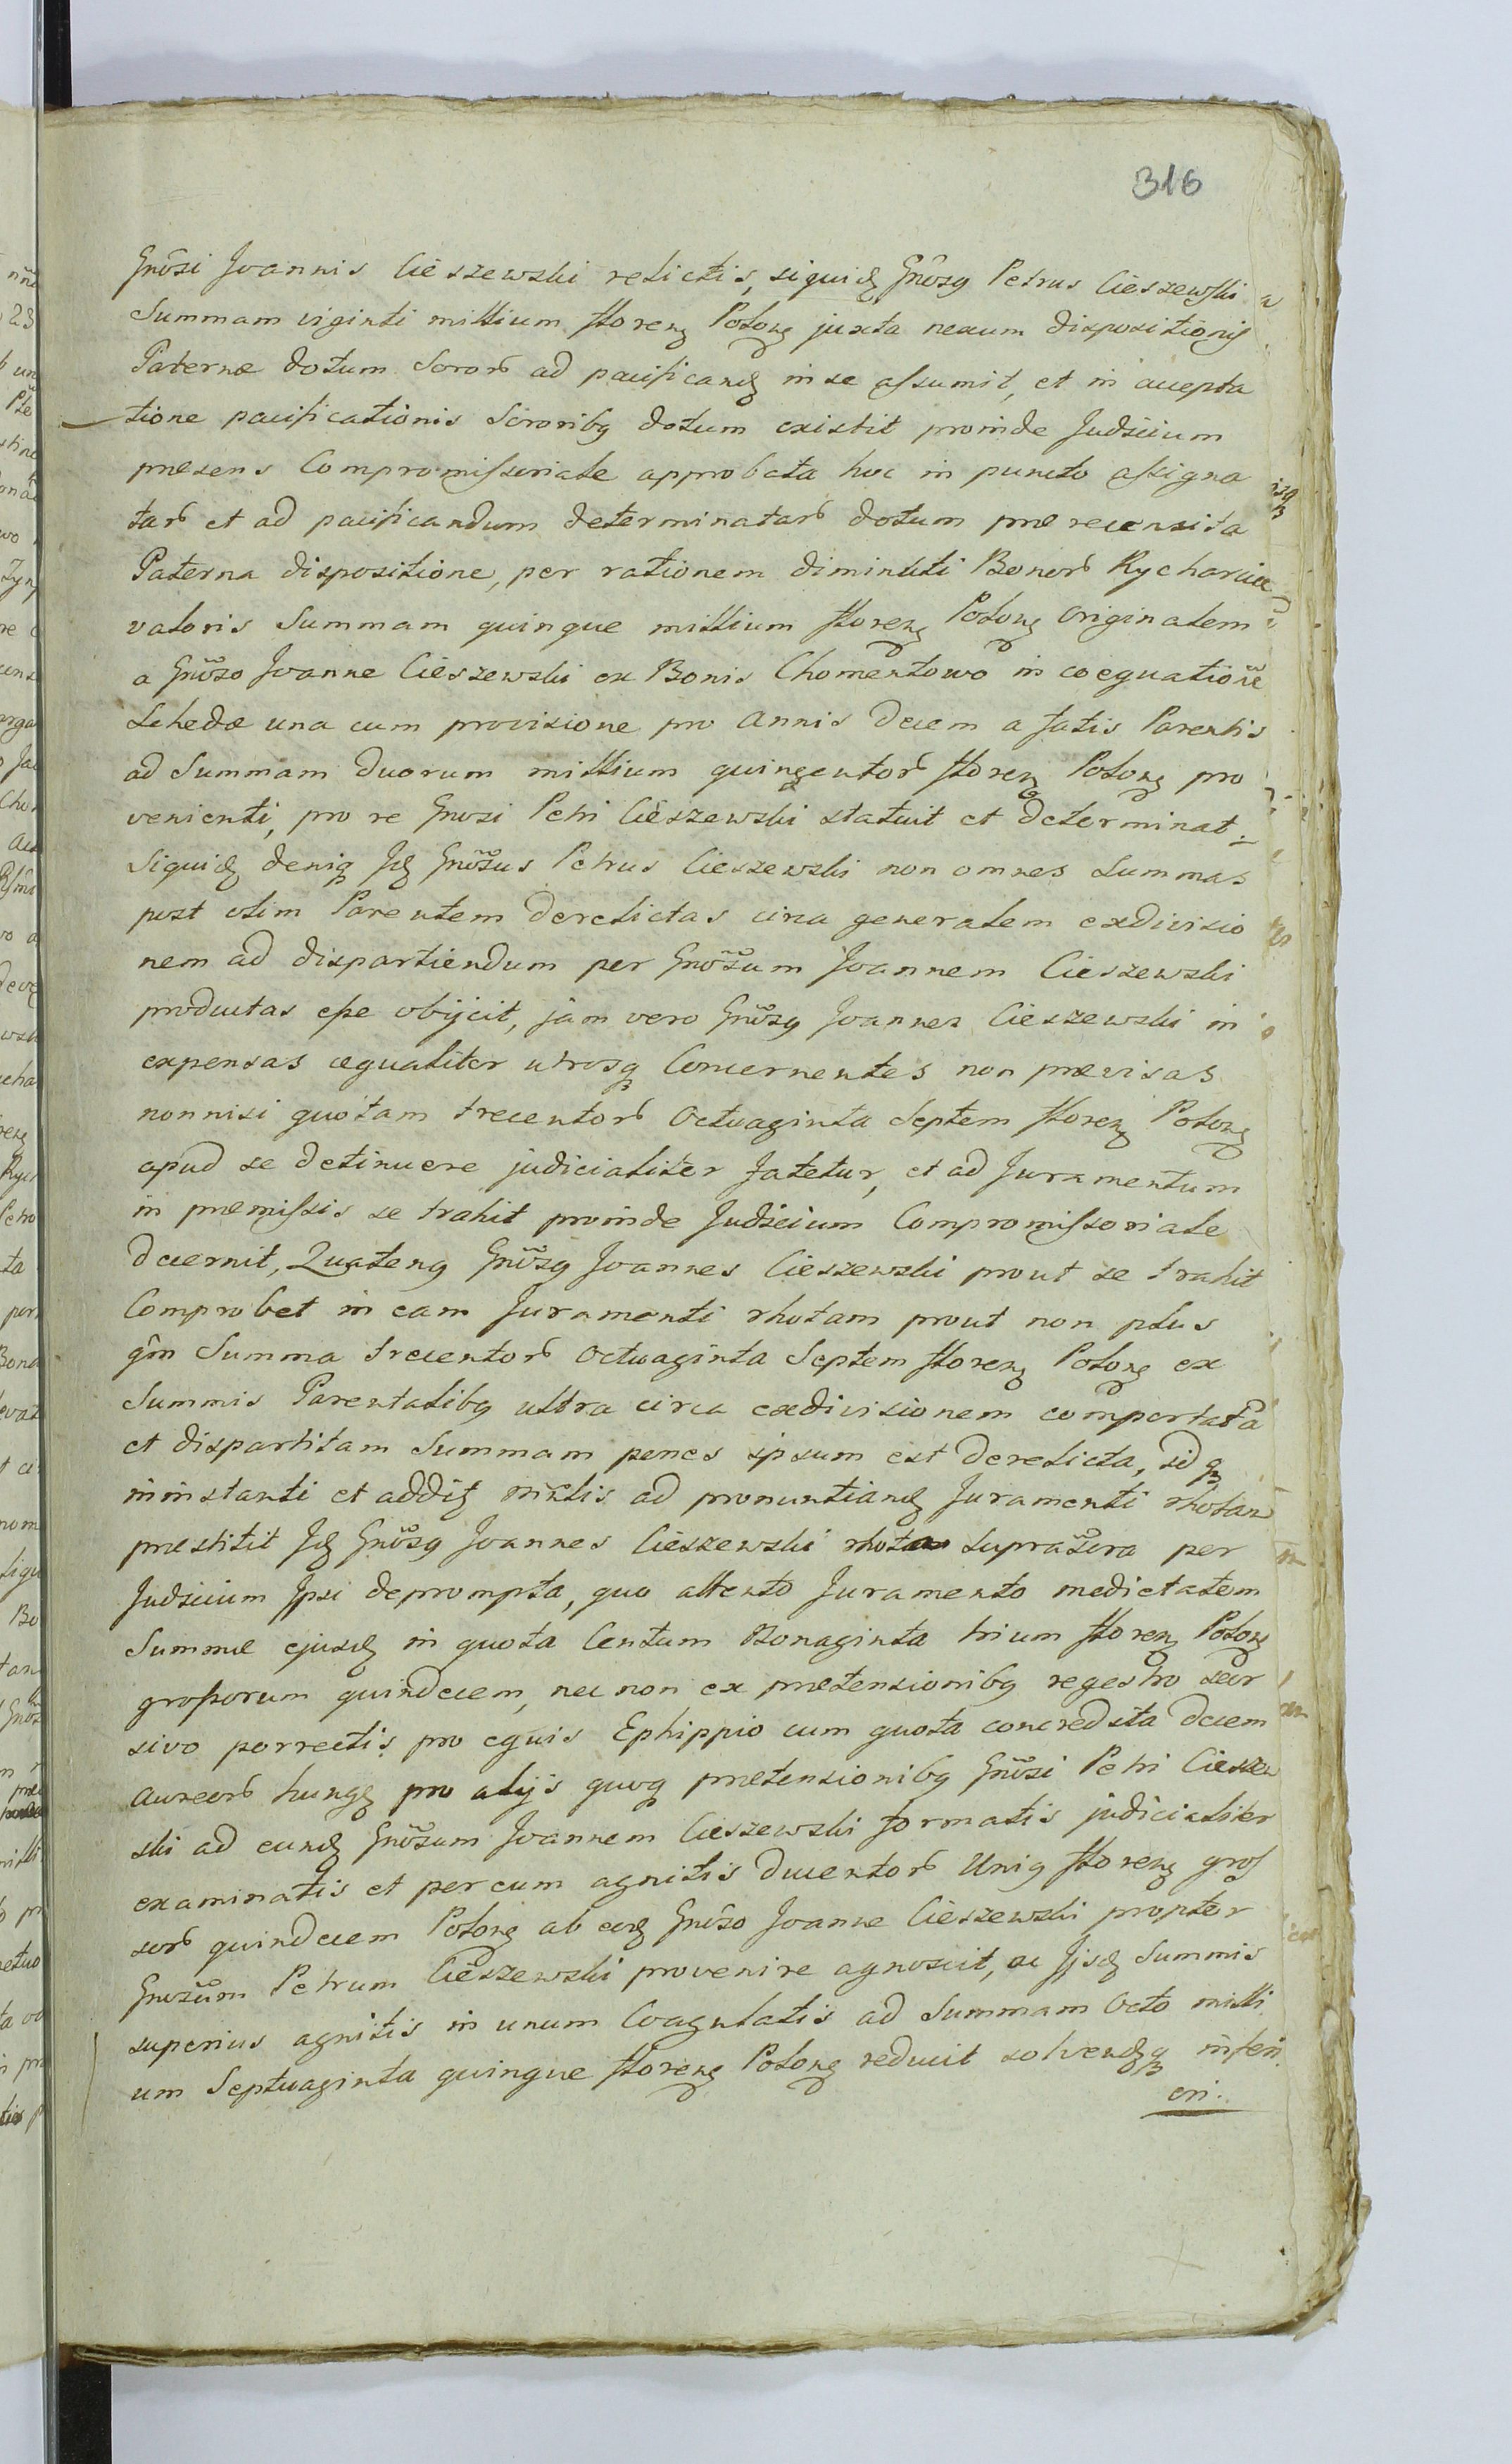 316
Gnôsi Joannis Cieszewski relictis, siquid Gnôsq Petrus Cieszewski
Summam viginti millium floren Polon juxta nexum dispositionis
Paternæ dotum Soror ad pacificand in se assumit, et in accepta
tione pacificationis Sororibq dotum existit proinde Judicium
præsens Compromissoriale approbata hoc in puncto assigna
tar et ad pacificandum determinatar dotum præ recensita
Paterna dispositione, per rationem diminuti Bonor Rycharcice
valoris Summam quinque millium floren Polon originalem
a Gnôso Joanne Cieszewski ex Bonis Chomentowo in coequatioñe
Schedæ una cum provisione pro Annis Decem a fatis Parentis
ad Summam Duorum millium quingentor floren Polon pro
venienti, pro re Gnosi Petri Cieszewski statuit et determinat
Siquid deniq Jd Gnôsus Petrus Cieszewski non omnes Summas
post olim Parentem derelictas circa generalem exdivisio
nem ad dispartiendum per Gnôsum Joannem Cieszewski
productas esse obijcit, jam vero Gnôsq Joannes Cieszewski in
expensas æqualiter utrosq Concernentes non prævisas
nonnisi quotam trecentor Octuaginta Septem floren Polon
apud se detinuere judicialiter fatetur, et ad Juramentum
in præmissis se trahit proinde Judicium Compromissoriale
decernit, Quatenq Gnôsq Joannes Cieszewski prout se trahit
Comprobet in eam Juramenti rhotam prout non plus
qm Summa trecentor Octuaginta Septem floren Polon ex
Summis Parentalibq ultra circa exdivisionem comportata
et dispartitam Summam penes ipsum est derelicta, id q
in instanti et addit mrlis ad pronuntiand Juramenti rhotam
præstitit Jd Gnôsq Joannes Cieszewski rhota supra per
Judicium Ipsi deprompta, quo attento Juramento medietatem
Summæ ejusd in quota Centum Nonaginta trium floren Polon
grossorum quindecem, nec non ex prætensionibq regestro seor
sivo porrectis pro equis Ephippio cum quota concredita decem
aureor hung pro alijs quoq prætensionibq Gnôsi Petri Cieszew
ski ad eund Gnôsum Joannem Cieszewski formatis judicialiter
examinatis et per eum agnitis Ducentor Uniq floren gros
sor quindecem Polon ab eod Gnôso Joanne Cieszewski propter
Gnosum Petrum Cieszewski provenire agnoscit, ac Ijsd Summis
superius agnitis in unum Coagulatis ad Summam Octo milli
um Septuaginta quinque floren Polon reducit solvendq inferi
ori.